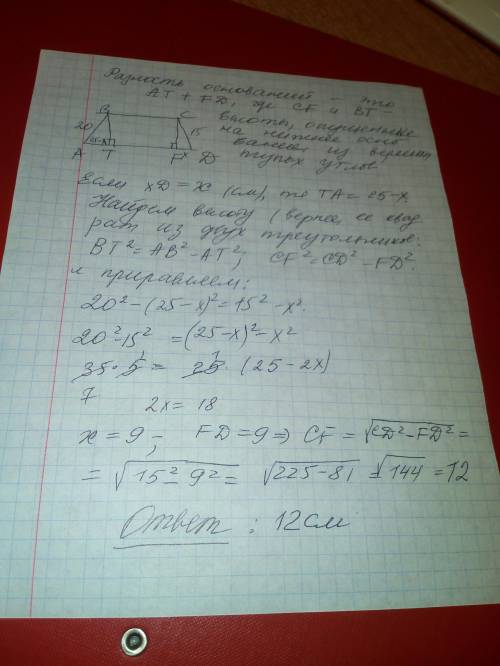 Разность оснований – это
AT + FD, где CF и BT –
высоты, опущенные
на нижнее осно
вание из вершин
тупых углов
B C
20 15
25-x x
A T F D
Если XD = x (см), то TA = 25-x.
Найдем высоту (вернее, ее квад
рат из двух треугольников:
BT² = AB² – AT²; CF² = CD² – FD².
и приравняем:
20² – (25-x)² = 15² – x².
20² – 15² = (25-x)² – x²
35 · 5 = 25 · (25 – 2x)
1 1
7 2x = 18
x = 9; FD = 9 ⇒ CF = √CD² – FD² =
= √15² – 9² = √225 – 81 = √144 = 12
Ответ : 12 см